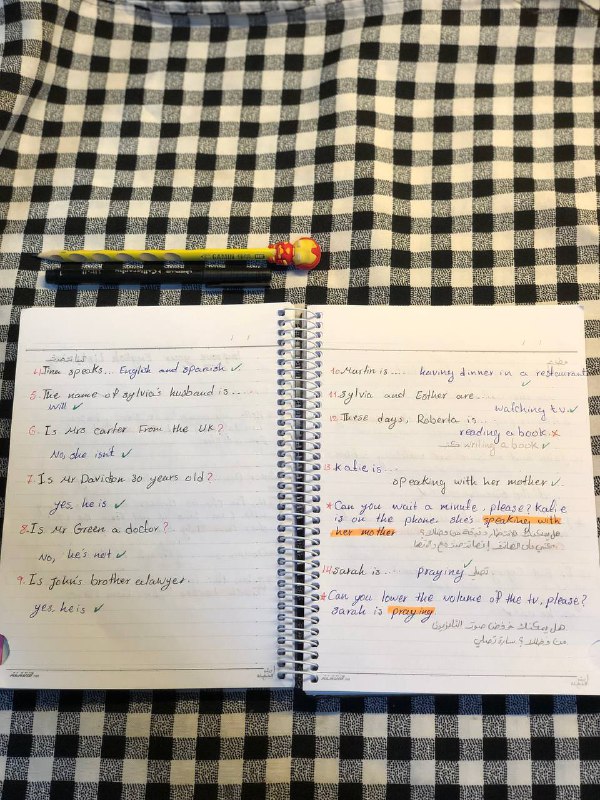 4. Tina speaks... English and Spanish ✓
5. The name of sylvia's husband is.....
will ✓
6. Is Mrs carter From the UK?
No, she isn't ✓
7. Is Mr Davidson 30 years old?
yes, he is ✓
8. Is Mr Green a doctor?
No, he's not ✓
9. Is John's brother a lawyer.
yes, he is ✓
10. Martin is.... having dinner in a restaurant
✓
11. Sylvia and Esther are....
watching t.v. ✓
12. These days, Roberta is...
reading a book. ×
writing a book ✓
13. Katie is...
speaking with her mother ✓
* Can you wait a minute, please? Katie
is on the phone. she's speaking with
her mother
14. Sarah is... praying ✓
* Can you lower the volume of the tv, please?
Sarah is praying
هل يمكنك خفض صوت التلفزيون
من فضلك؟ سارة تصلي